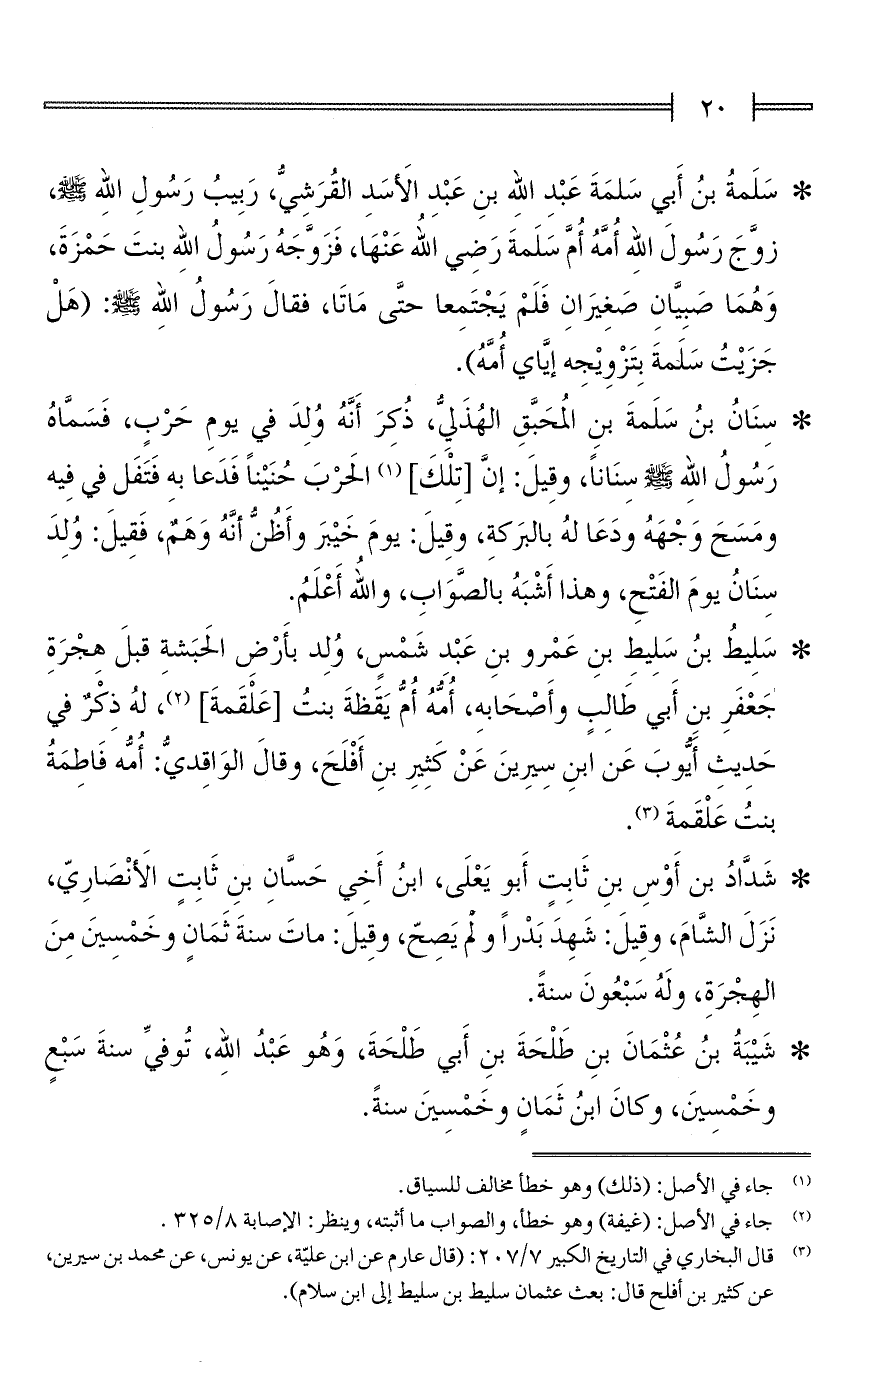 ٢٠
* سَلَمةُ بنُ أَبي سَلمَةَ عَبْدِ الله بنِ عَبْدِ الأَسَدِ القُرَشِيُّ، رَبِيبُ رَسُولِ الله ﷺ،
زوَّجَ رَسُولَ الله أُمَّهُ أُمَّ سَلَمةَ رَضِي اللهُ عَنْهَا، فَزَوَّجَهُ رَسُولُ الله بنتَ حَمْزَةَ،
وَهُمَا صَبِيَّانِ صَغِيرَانِ فَلَمْ يَجْتَمِعا حتَّى مَاتَا، فقالَ رَسُولُ الله ﷺ: (هَلْ
جَزَيْتُ سَلَمةَ بِتَزْوِيْجِه إيَّاي أُمَّهُ).
* سِنَانُ بنُ سَلَمةَ بنِ المُحَبَّقِ الهُذَليُّ، ذُكِرَ أَنَّهُ وُلدَ في يومِ حَرْبٍ، فَسَمَّاهُ
رَسُولُ الله ﷺ سِنَاناً، وقِيلَ: إنَّ [تِلْكَ] (١) الحَرْبَ حُنَيْناً فَدَعا بهِ فَتَفَل في فِيه
ومَسَحَ وَجْهَهُ ودَعَا لهُ بالبَركةِ، وقِيلَ: يومَ خَيْبَر وأَظُنُّ أنَّهُ وَهَمٌ، فَقِيلَ: وُلدَ
سِنَانُ يومَ الفَتْحِ، وهذا أَشْبَهُ بالصَّوَابِ، واللهُ أَعْلَمُ.
* سَلِيطُ بنُ سَلِيطِ بنِ عَمْرو بنِ عَبْدِ شَمْسٍ، وُلد بأَرْضِ الحَبَشةِ قبلَ هِجْرَةِ
جَعْفَرِ بنِ أبي طَالِبٍ وأَصْحَابهِ، أُمُّهُ أُمُّ يَقَظةَ بنتُ [عَلْقَمةَ] (٢)، لهُ ذِكْرٌ في
حَدِيثِ أَيُّوبَ عَن ابنِ سِيرينَ عَنْ كَثِيرِ بنِ أَفْلَحَ، وقالَ الوَاقِديُّ: أُمُّه فَاطِمَةُ
بنتُ عَلْقَمةَ (٣).
* شَدَّادُ بن أَوْسِ بنِ ثَابتٍ أَبو يَعْلَى، ابنُ أَخِي حَسَّانِ بنِ ثَابتٍ الأَنْصَاريّ،
نَزَلَ الشَّامَ، وقِيلَ: شَهِدَ بَدْراً ولم يَصِحّ، وقِيلَ: ماتَ سنةَ ثَمَانٍ وخَمْسِينَ مِنَ
الهِجْرَةِ، ولَهُ سَبْعُونَ سنةً.
* شَيْبَةُ بنُ عُثْمَانَ بنِ طَلْحَةَ بنِ أَبي طَلْحَةَ، وَهُو عَبْدُ الله، تُوفيِّ سنةَ سَبْعٍ
وخَمْسِينَ، وكانَ ابنُ ثَمَانٍ وخَمْسِينَ سنةً.
(١) جاء في الأصل: (ذلك) وهو خطأ مخالف للسياق.
(٢) جاء في الأصل: (غيفة) وهو خطأ، والصواب ما أثبته، وينظر: الإصابة ٣٢٥/٨ .
(٣) قال البخاري في التاريخ الكبير ٢٠٧/٧: (قال عارم عن ابن عليّة، عن يونس، عن محمد بن سيرين،
عن كثير بن أفلح قال: بعث عثمان سليط بن سليط إلى ابن سلام).